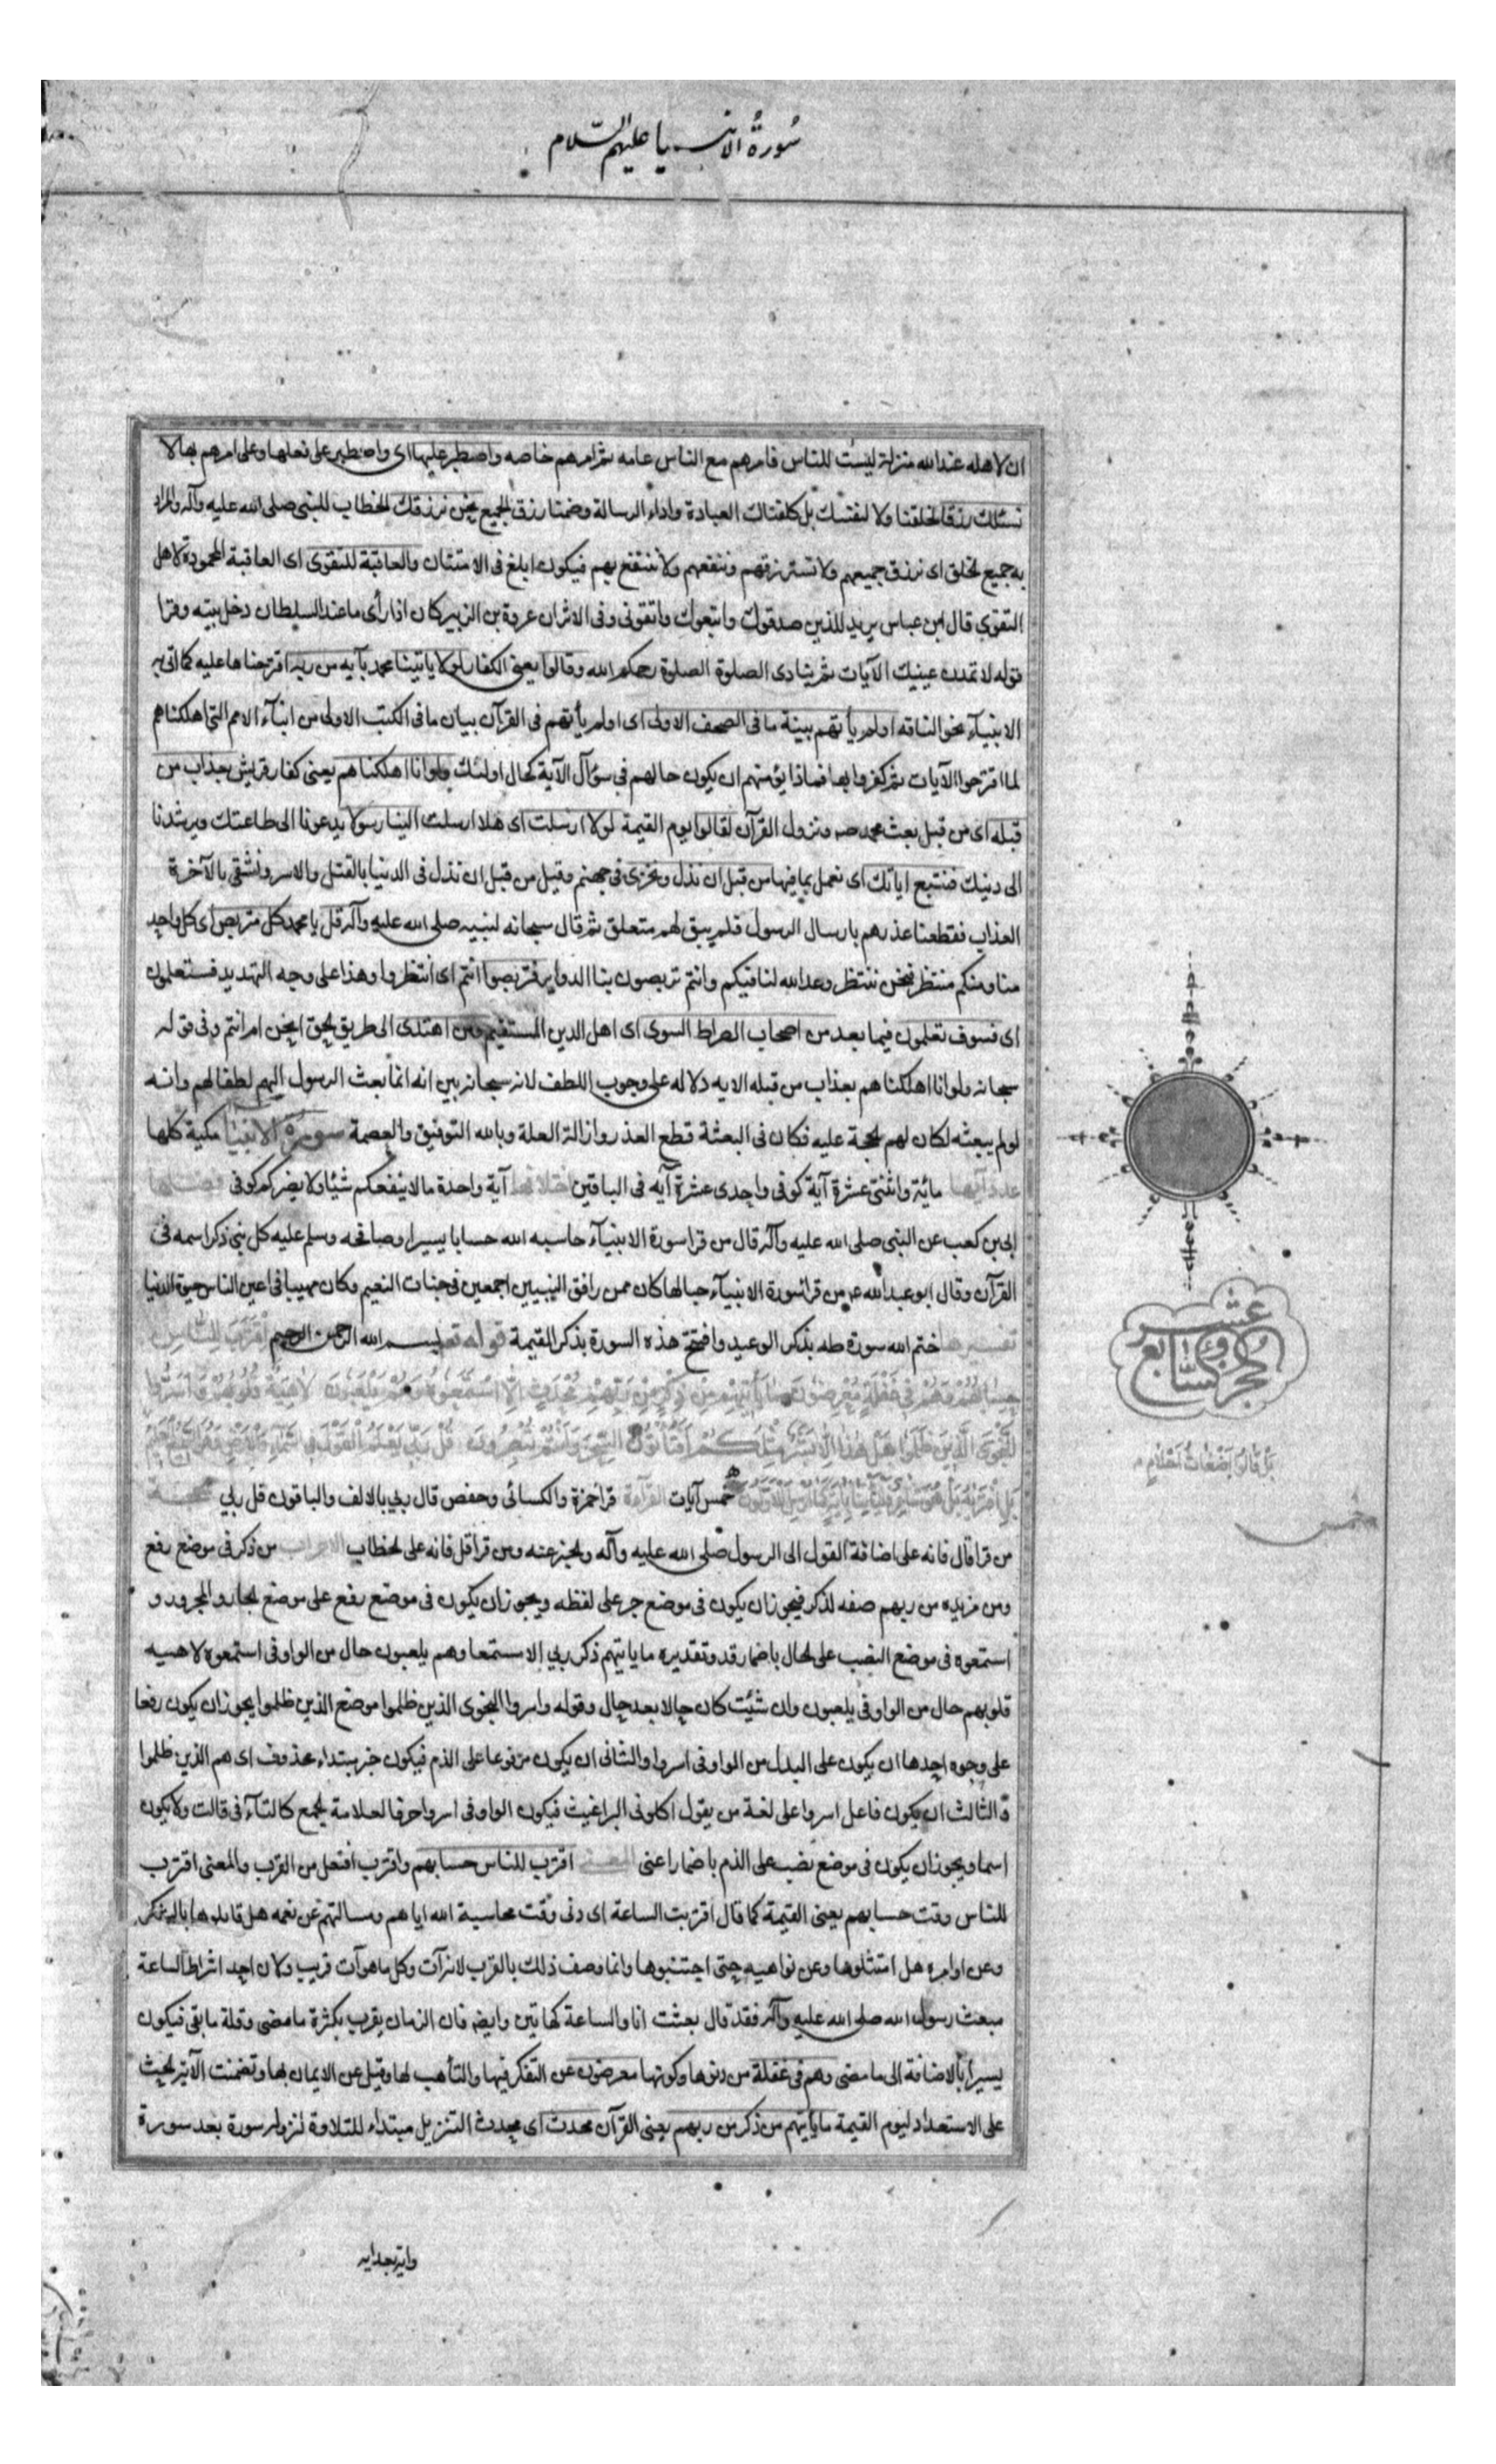 سورة الانبيا عليهم السلام
ان لاهله عند الله منزلة ليست للناس فامرهم مع الناس عامه ثم امرهم خاصه واصطبر عليها اى واصطبر على فعلها وعلى امرهم بها لا
نسئلك رزقا لخلقنا ولا لنفسك بل كلفناك العبادة واداء الرسالة وضمنا رزق الجميع نحن نرزقك الخطاب للنبى صلى الله عليه وآله والمراد
به جميع الخلق اى نرزق جميعهم ولا نسترزقهم وننفعهم ولا ننتفع بهم فيكون ابلغ فى الامتنان والعاقبة للتقوى اى العاقبة المحمودة لاهل
التقوى قال ابن عباس يريد للذين صدقوك واتبعوك واتقونى وفى الاثر ان عروة بن الزبير كان اذا رأى ما عند السلطان دخل بيته وقرا
قوله لا تمدن عينيك الآيات ثم ينادى الصلوة الصلوة رحمكم الله وقالوا يعنى الكفار لولا ياتينا محمد بآيه من ربه اقترحناها عليه كما اتى به
الانبيآء نحو الناقه اولم يأتهم بينة ما فى الصحف الاولى اى اولم يأتهم فى القرآن بيان ما فى الكتب الاولى من انبآء الامم التى اهلكناهم
لما اقترحوا الآيات ثم كفروا بها فماذا يؤمنهم ان يكون حالهم فى سؤال الآية كحال اولئك ولو انا اهلكناهم يعنى كفار قريش بعذاب من
قبله اى من قبل بعث محمد صم ونزول القرآن لقالوا يوم القيمة لولا ارسلت اى هلا ارسلت الينا رسولا يدعونا الى طاعتك ويرشدنا
الى دينك فنتبع اياتك اى نعمل بما فيها من قبل ان نذل ونخزى فى جهنم وقيل من قبل ان نذل فى الدنيا بالقتل والاسر ونشقى بالآخرة
العذاب فقطعنا عذرهم بارسال الرسول فلم يبق لهم متعلق ثم قال سبحانه لنبيه صلى الله عليه وآله قل يا محمد كل متربص اى كل واحد
منا ومنكم منتظر فنحن ننتظر وعد الله لنا فيكم وانتم تربصون بنا الدواير فتربصوا انتم اى انتظروا وهذا على وجه التهديد فستعلمون
اى فسوف تعلمون فيما بعد من اصحاب الصراط السوى اى اهل الدين المستقيم ومن اهتدى الى طريق الحق انحن ام انتم وفى قوله
سبحانه ولو انا اهلكناهم بعذاب من قبله الايه دلاله على وجوب اللطف لانه سبحانه بين انه انما بعث الرسول اليهم لطفا لهم وانه
لو لم يبعثه لكان لهم الحجة عليه فكان فى البعثة قطع العذر وازالة العلة وبالله التوفيق والعصمة سورة الانبيا مكية كلها
عدد آيها مائة واثنتى عشرة آية كوفى واحدى عشرة آيه فى الباقين اختلافها آية واحدة ما لا ينفعكم شيئا ولا يضركم كوفى فضلها
ابى بن كعب عن النبى صلى الله عليه وآله قال من قرا سورة الانبيآء حاسبه الله حسابا يسيرا وصافحه وسلم عليه كل نبى ذكر اسمه فى
القرآن وقال ابو عبد الله ع من قرا سورة الانبيآء حبا لها كان ممن رافق النبيين اجمعين فى جنات النعيم وكان مهيبا فى اعين الناس حيوة الدنيا
تفسيرها ختم الله سورة طه بذكر الوعيد وافتتح هذه السورة بذكر القيمة قوله تعالى بسم الله الرحمن الرحيم اقترب للناس
حسابهم وهم فى غفلة معرضون ما يأتيهم من ذكر من ربهم محدث الا استمعوه وهم يلعبون لاهية قلوبهم واسروا
النجوى الذين ظلموا هل هذا الا بشر مثلكم افتأتون السحر وانتم تبصرون قل ربى يعلم القول فى السماء والارض وهو السميع العليم
بل افتريه بل هو شاعر فليأتنا بآية كما ارسل الاولون خمس آيات القراءة قرا حمزة والكسائى وحفص قال ربى بالالف والباقون قل ربى الحجة
من قرا قال فانه على اضافة القول الى الرسول صلى الله عليه وآله والخبر عنه ومن قرا قل فانه على الخطاب الاعراب من ذكر فى موضع رفع
ومن مزيده من ربهم صفه لذكر فيجوز ان يكون فى موضع جر على لفظه ويجوز ان يكون فى موضع رفع على موضع الجار والمجرور و
استمعوه فى موضع النصب على الحال باضمار قد وتقديره ما ياتيهم ذكر ربى الا مستمعا وهم يلعبون حال من الواو فى استمعوه لاهيه
قلوبهم حال من الواو فى يلعبون وان شئت كان حالا بعد حال وقوله واسروا النجوى الذين ظلموا موضع الذين ظلموا يجوز ان يكون رفعا
على وجوه احدها ان يكون على البدل من الواو فى اسروا والثانى ان يكون مرفوعا على الذم فيكون خبر مبتداء محذوف اى هم الذين ظلموا
والثالث ان يكون فاعل اسروا على لغة من يقول اكلونى البراغيث فيكون الواو فى اسروا حرفا لعلامة الجمع كالتآء فى قالت ولا يكون
اسما ويجوز ان يكون فى موضع نصب على الذم باضمار اعنى المعنى اقترب للناس حسابهم واقترب افتعل من القرب والمعنى اقترب
للناس وقت حسابهم يعنى القيمة كما قال اقتربت الساعة اى دنى وقت محاسبة الله اياهم ومسالتهم عن نعمه هل قابلوها بالشكر
وعن اوامره هل امتثلوها وعن نواهيه حتى اجتنبوها وانما وصف ذلك بالقرب لانه آت وكل ما هو آت قريب ولان احد اشراط الساعة
مبعث رسول الله صلى الله عليه وآله فقد قال بعثت انا والساعة كهاتين وايضا فان الزمان يقرب بكثرة ما مضى وقلة ما بقى فيكون
يسيرا بالاضافة الى ما مضى وهم فى غفلة من دنوها وكونها معرضون عن التفكر فيها والتأهب لها وقيل عن الايمان بها وتضمنت الآية الحث
على الاستعداد ليوم القيمة ما ياتيهم من ذكر من ربهم يعنى القرآن محدث اى محدث التنزيل مبتداء للتلاوة لنزوله سورة بعد سورة
عشر
بل قالوا اضغاث احلام
خمس
واية بعد ايه